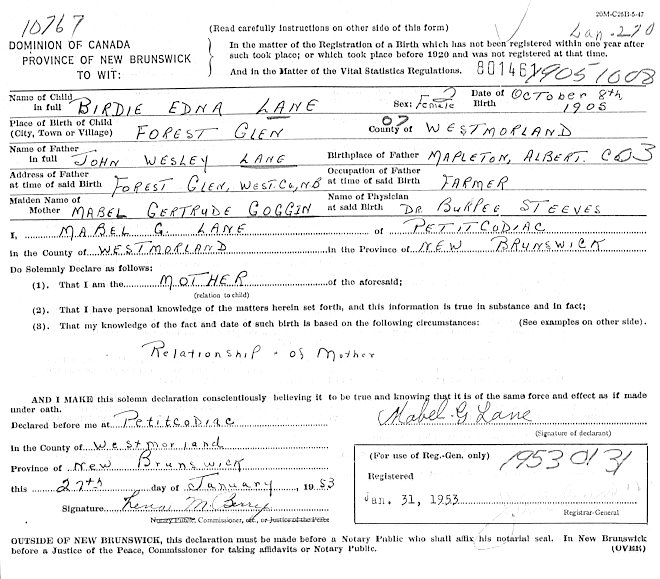 20M-C25B-5-47
10767
(Read carefully instructions on other side of this form)
Jan. 270
DOMINION OF CANADA
PROVINCE OF NEW BRUNSWICK
TO WIT:
In the matter of the Registration of a Birth which has not been registered within one year after
such took place; or which took place before 1920 and was not registered at that time.
And in the Matter of the Vital Statistics Regulations. 80146 1905 1008
Name of Child in full BIRDIE EDNA LANE Sex: Female 2 Date of Birth October 8th, 1905
Place of Birth of Child (City, Town or Village) FOREST GLEN 07 County of WESTMORLAND
Name of Father in full JOHN WESLEY LANE Birthplace of Father MAPLETON, ALBERT. CO 03
Address of Father at time of said Birth FOREST GLEN, WEST. CO, NB Occupation of Father at time of said Birth FARMER
Maiden Name of Mother MABEL GERTRUDE GOGGIN Name of Physician at said Birth DR BURPEE STEEVES
I, MABEL G. LANE of PETITCODIAC
in the County of WESTMORLAND in the Province of NEW BRUNSWICK
Do Solemnly Declare as follows:
(1). That I am the MOTHER of the aforesaid;
(relation to child)
(2). That I have personal knowledge of the matters herein set forth, and this information is true in substance and in fact;
(3). That my knowledge of the fact and date of such birth is based on the following circumstances: (See examples on other side).
Relationship - of Mother
AND I MAKE this solemn declaration conscientiously believing it to be true and knowing that it is of the same force and effect as if made
under oath.
Declared before me at Petitcodiac
Mabel G Lane
(Signature of declarant)
in the County of Westmorland
Province of New Brunswick
this 27th day of January, 1953
Signature
Notary Public, Commissioner, etc., or Justice of the Peace
(For use of Reg.-Gen. only) 1953 0131
Registered
Jan. 31, 1953
Registrar-General
OUTSIDE OF NEW BRUNSWICK, this declaration must be made before a Notary Public who shall affix his notarial seal. In New Brunswick
before a Justice of the Peace, Commissioner for taking affidavits or Notary Public. (OVER)